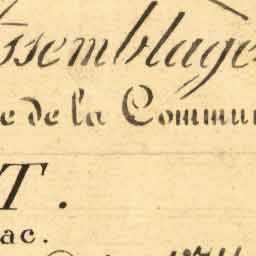 ssemblage
e de la Commu
T.
ac.